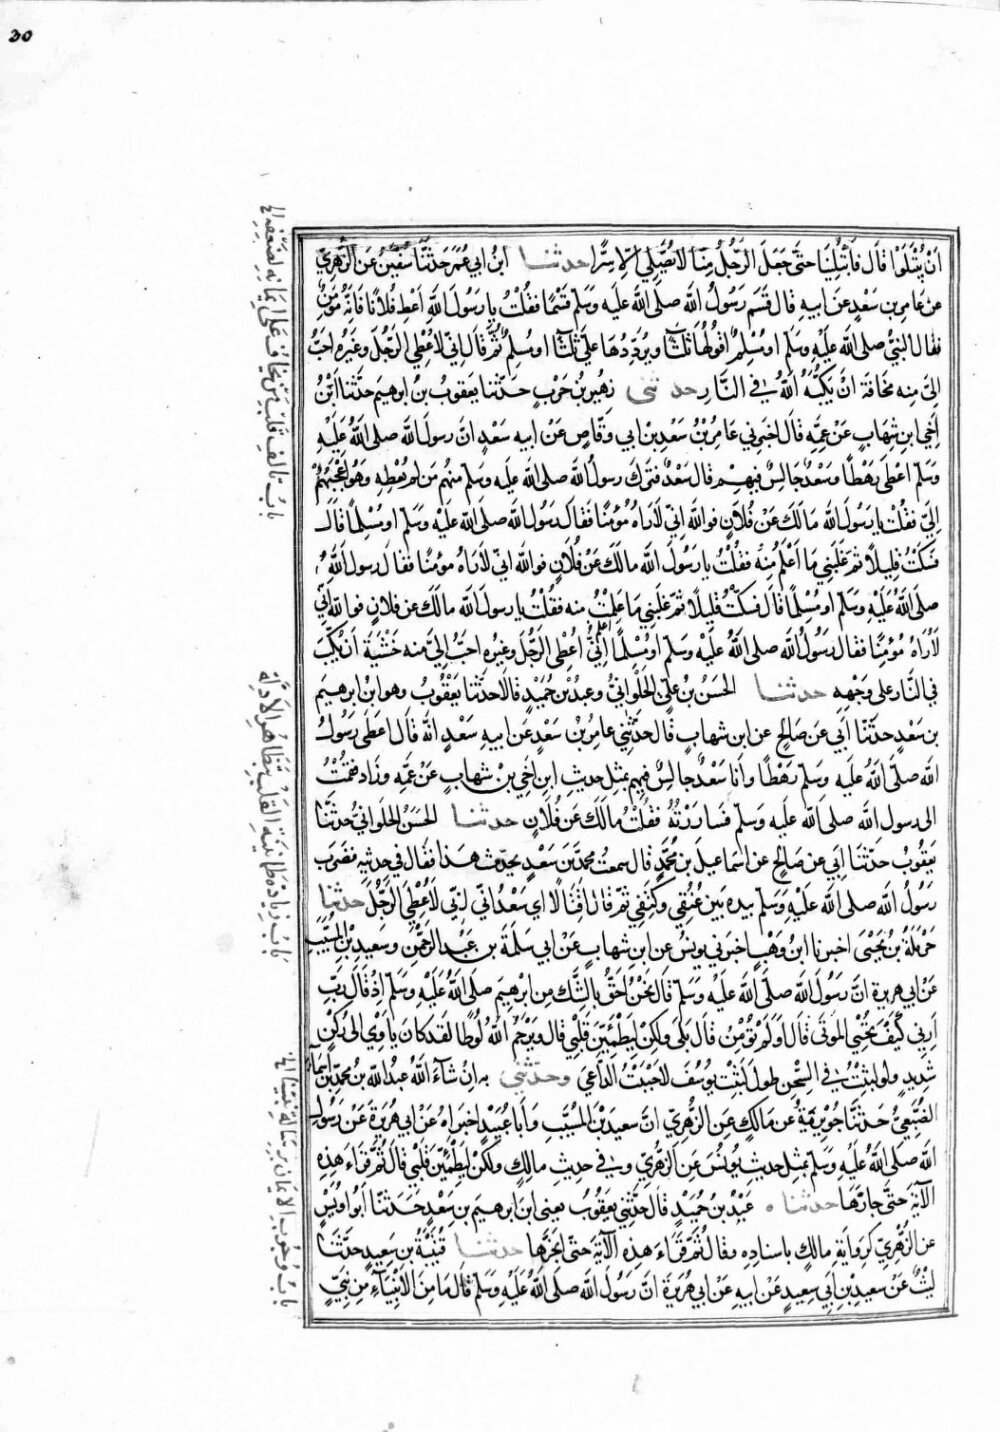 30
ان تُبْتَلَوْا قال فَابْتُلِينَا حتى جَعَلَ الرَّجُلُ مِنَّا لا يُصَلِّي اِلَّا سِرًّا حدثنا ابنُ ابي عُمَرَ حَدَّثَنَا سُفْيٰنُ عَنِ الزُّهْرِيِّ
عن عامِرِ بن سَعْدٍ عَنْ ابيه قال قَسَمَ رَسُولُ الله صلى الله عليه وسلم قَسْمًا فقُلْتُ يا رَسُولَ اللهِ اَعْطِ فُلَانًا فَاِنَّهُ مُؤْمِنٌ
فقال النبيُّ صلى الله عليه وسلم او مُسْلِمٌ اقولُهَا ثَلَاثًا ويُرَدِّدُهَا عَلَيَّ ثَلَاثًا او مُسْلِمٌ ثُمَّ قال اِنِّي لَاُعْطِي الرَّجُلَ وغَيْرُه احَبُّ
اليَّ منه مخافةَ انْ يَكُبَّهُ اللهُ في النَّارِ حدثنى زهيرُ بن حَرْبٍ حَدَّثَنا يعقوبُ بنُ ابرهيم حدَّثَنَا ابْنُ
اَخِي ابنِ شِهَابٍ عَنْ عَمِّهِ قال اخبرني عَامِرُ بْنُ سَعْدِ بْنِ ابي وقَّاصٍ عَنْ ابيه سَعْدٍ انَّ رسولَ الله صلى الله عَلَيْهِ
وَسَلّم اعْطَى رَهْطًا وسَعْدٌ جالِسٌ فيهِمْ قال سَعْدٌ فتَرَكَ رسولُ الله صلى الله عليه وسلم منهُم مَن لم يُعْطِهِ وهُوَ اَعْجَبُهُمْ
اِلَيَّ فقُلْتُ يا رَسُولَ اللهِ مَا لَكَ عَنْ فُلَانٍ فواللهِ اِنِّي لَاَرَاهُ مُؤْمِنًا فقال رَسُولُ الله صلى الله عَلَيْهِ وَسَلّم او مُسْلِمًا قالَ
فَسَكَتُّ قَلِيلًا ثُمَّ غَلَبَنِي مَا اَعْلَمُ مِنْهُ فقُلْتُ يا رَسُولَ اللهِ مَا لَكَ عَنْ فُلَانٍ فواللهِ انّي لَاَرَاهُ مُؤمِنًا فقال رسول اللهِ
صلى اللهُ عَلَيْهِ وَسَلّم او مُسْلِمًا قال فَسَكَتُّ قَلِيلًا ثُمَّ غَلَبَنِي مَا عَلِمْتُ منه فقُلْتُ يا رسولَ اللهِ مالَكَ عن فلانٍ فواللهِ اِنّي
لَاَرَاهُ مُؤْمِنًا فقال رَسُولُ الله صلى اللهُ عَلَيْهِ وَسَلّم او مُسْلِمًا اِنِّي اُعْطِى الرَّجُلَ وغَيْرُه احَبُّ اِلَيَّ منه خَشْيَةَ اَنْ يُكَبَّ
في النَّارِ على وَجْهِهِ حدثنا الحَسَنُ بْنُ عَلِيٍّ الحُلْوَانِيُّ وعبدُ بْنُ حُمَيْدٍ قالا حَدَّثنا يَعْقُوبُ وهو ابنُ ابرهيم
بن سَعْدٍ حدثَنَا اَبي عن صَالِحٍ عن ابن شهابٍ قال حَدَّثَنِي عامِرُ بْنُ سَعْدٍ عَن ابيه سَعْدٍ انَّه قال اعطَى رَسُولُ
الله صلَّى اللهُ عليه وسلّم رَهْطًا وانا سَعْدٌ جالِسٌ فيهم بمثل حديثِ ابنِ اَخِي بْنِ شهابٍ عَنْ عَمِّهِ وزاد فقُمْتُ
الى رسول الله صلى الله عليه وسلم فَسَارَرْتُهُ فقُلْتُ مالَكَ عَن فُلَانٍ حدثنا الحَسَنُ الحلوانيُّ حدثَنَا
يعقوبُ حدّثَنَا اَبي عن صَالِحٍ عن اسماعيلَ بن مُحَمَّدٍ قال سمعتُ محمدَ بْنَ سَعْدٍ يحدّث هٰذا فقال في حديثِه فضَرَبَ
رَسُولُ الله صلى الله عَلَيْهِ وَسَلّم بيده بَينَ عُنُقِي وكَتِفِي ثم قال اَقِتَالًا اي سَعْدُ انّي اِنّي لَاُعْطِي الرَّجُلَ حدثنا
حَرْمَلَةُ بْنُ يَحْيَى اخبرنا ابنُ وَهْبٍ اخبَرَنِي يونُسُ عن ابن شِهابٍ عَنْ ابي سَلَمَةَ بن عَبدِ الرَّحْمٰنِ وسَعِيدِ بْنِ المُسَيَّبِ
عَنْ ابي هريرة انَّ رَسُولَ الله صلَّى اللهُ عَلَيْهِ وَسَلّم قَال نَحْنُ اَحَقُّ بالشَّكِّ مِن اِبْرَهِيمَ صلى اللهُ عَلَيْهِ وَسَلّم اِذْ قَالَ رَبِّ
اَرِنِي كَيْفَ تُحْيِي المَوْتَى قال اَوَلَمْ تُؤْمِنْ قال بَلَى ولٰكِنْ لِيَطْمَئِنَّ قَلْبِي قال ويَرْحَمُ اللهُ لُوطًا لقَد كان يَاْوِي الى رُكْنٍ
شديدٍ ولو لبثْتُ في السِّجْنِ طولَ لَبْثِ يوسُفَ لَاَجَبْتُ الدَّاعِيَ وحدثنى به اِنْ شآءَ اللهُ عبدُ اللهِ بنُ محمّدِ بْنِ اَسْمَآءَ
الضُّبَعِيُّ حَدَّثَنَا جُوَيْرِيَةُ عَن مَالِكٍ عَنِ الزُّهْرِيِّ انَّ سعيدَ بْنَ المُسَيَّبِ وأبا عُبَيْدٍ اخبَراهُ عَنْ ابي هُرَيْرَةَ عَن رَسُولِ
الله صَلَى الله عَلَيْهِ وَسَلّم بمثلِ حديثِ يونُسَ عَنِ الزُّهْرِيِّ وفي حديثِ مالكٍ ولكنْ لِيَطْمَئِنَّ قَلْبي قَالَ ثُمَّ قَرَاَ هَذِهِ
الآيةَ حَتّى جازَهَا حدثنا عَبْدُ بن حُمَيْدٍ قَال حَدَّثَنِي يَعْقُوبُ يعني ابنَ ابرهيم بن سَعْدٍ حَدَّثَنَا ابو اوَيْسٍ
عن الزُّهْرِيِّ كَرِوايةِ مالكٍ باسنادِه وقال ثُمَّ قَرَاَ هَذِه الآيةَ حَتّى اَنْجَزَهَا حدثنا قُتَيْبَةُ بن سَعِيدٍ حدّثَنَا
لَيْثٌ عَنْ سعيدِ بْنِ اَبي سَعِيدٍ عَنْ ابيهِ عَنْ ابي هُرَيْرَةَ انَّ رسُولَ الله صلى اللهُ عَلَيْهِ وَسَلّم قال مَا مِنَ الاَنْبِيَآءِ مِن نَبِيٍّ
بابُ تالفِ قلبِ مَنْ يَخافُ عَلَى اِيمَانِهِ لِضَعْفِهِ الخ
بابُ زيادة طمانينةِ القَلْبِ بتظَاهُرِ الاَدِلَّةِ
بابُ وجُوبِ الايمانِ برسَالَةِ نبيّنا الخ